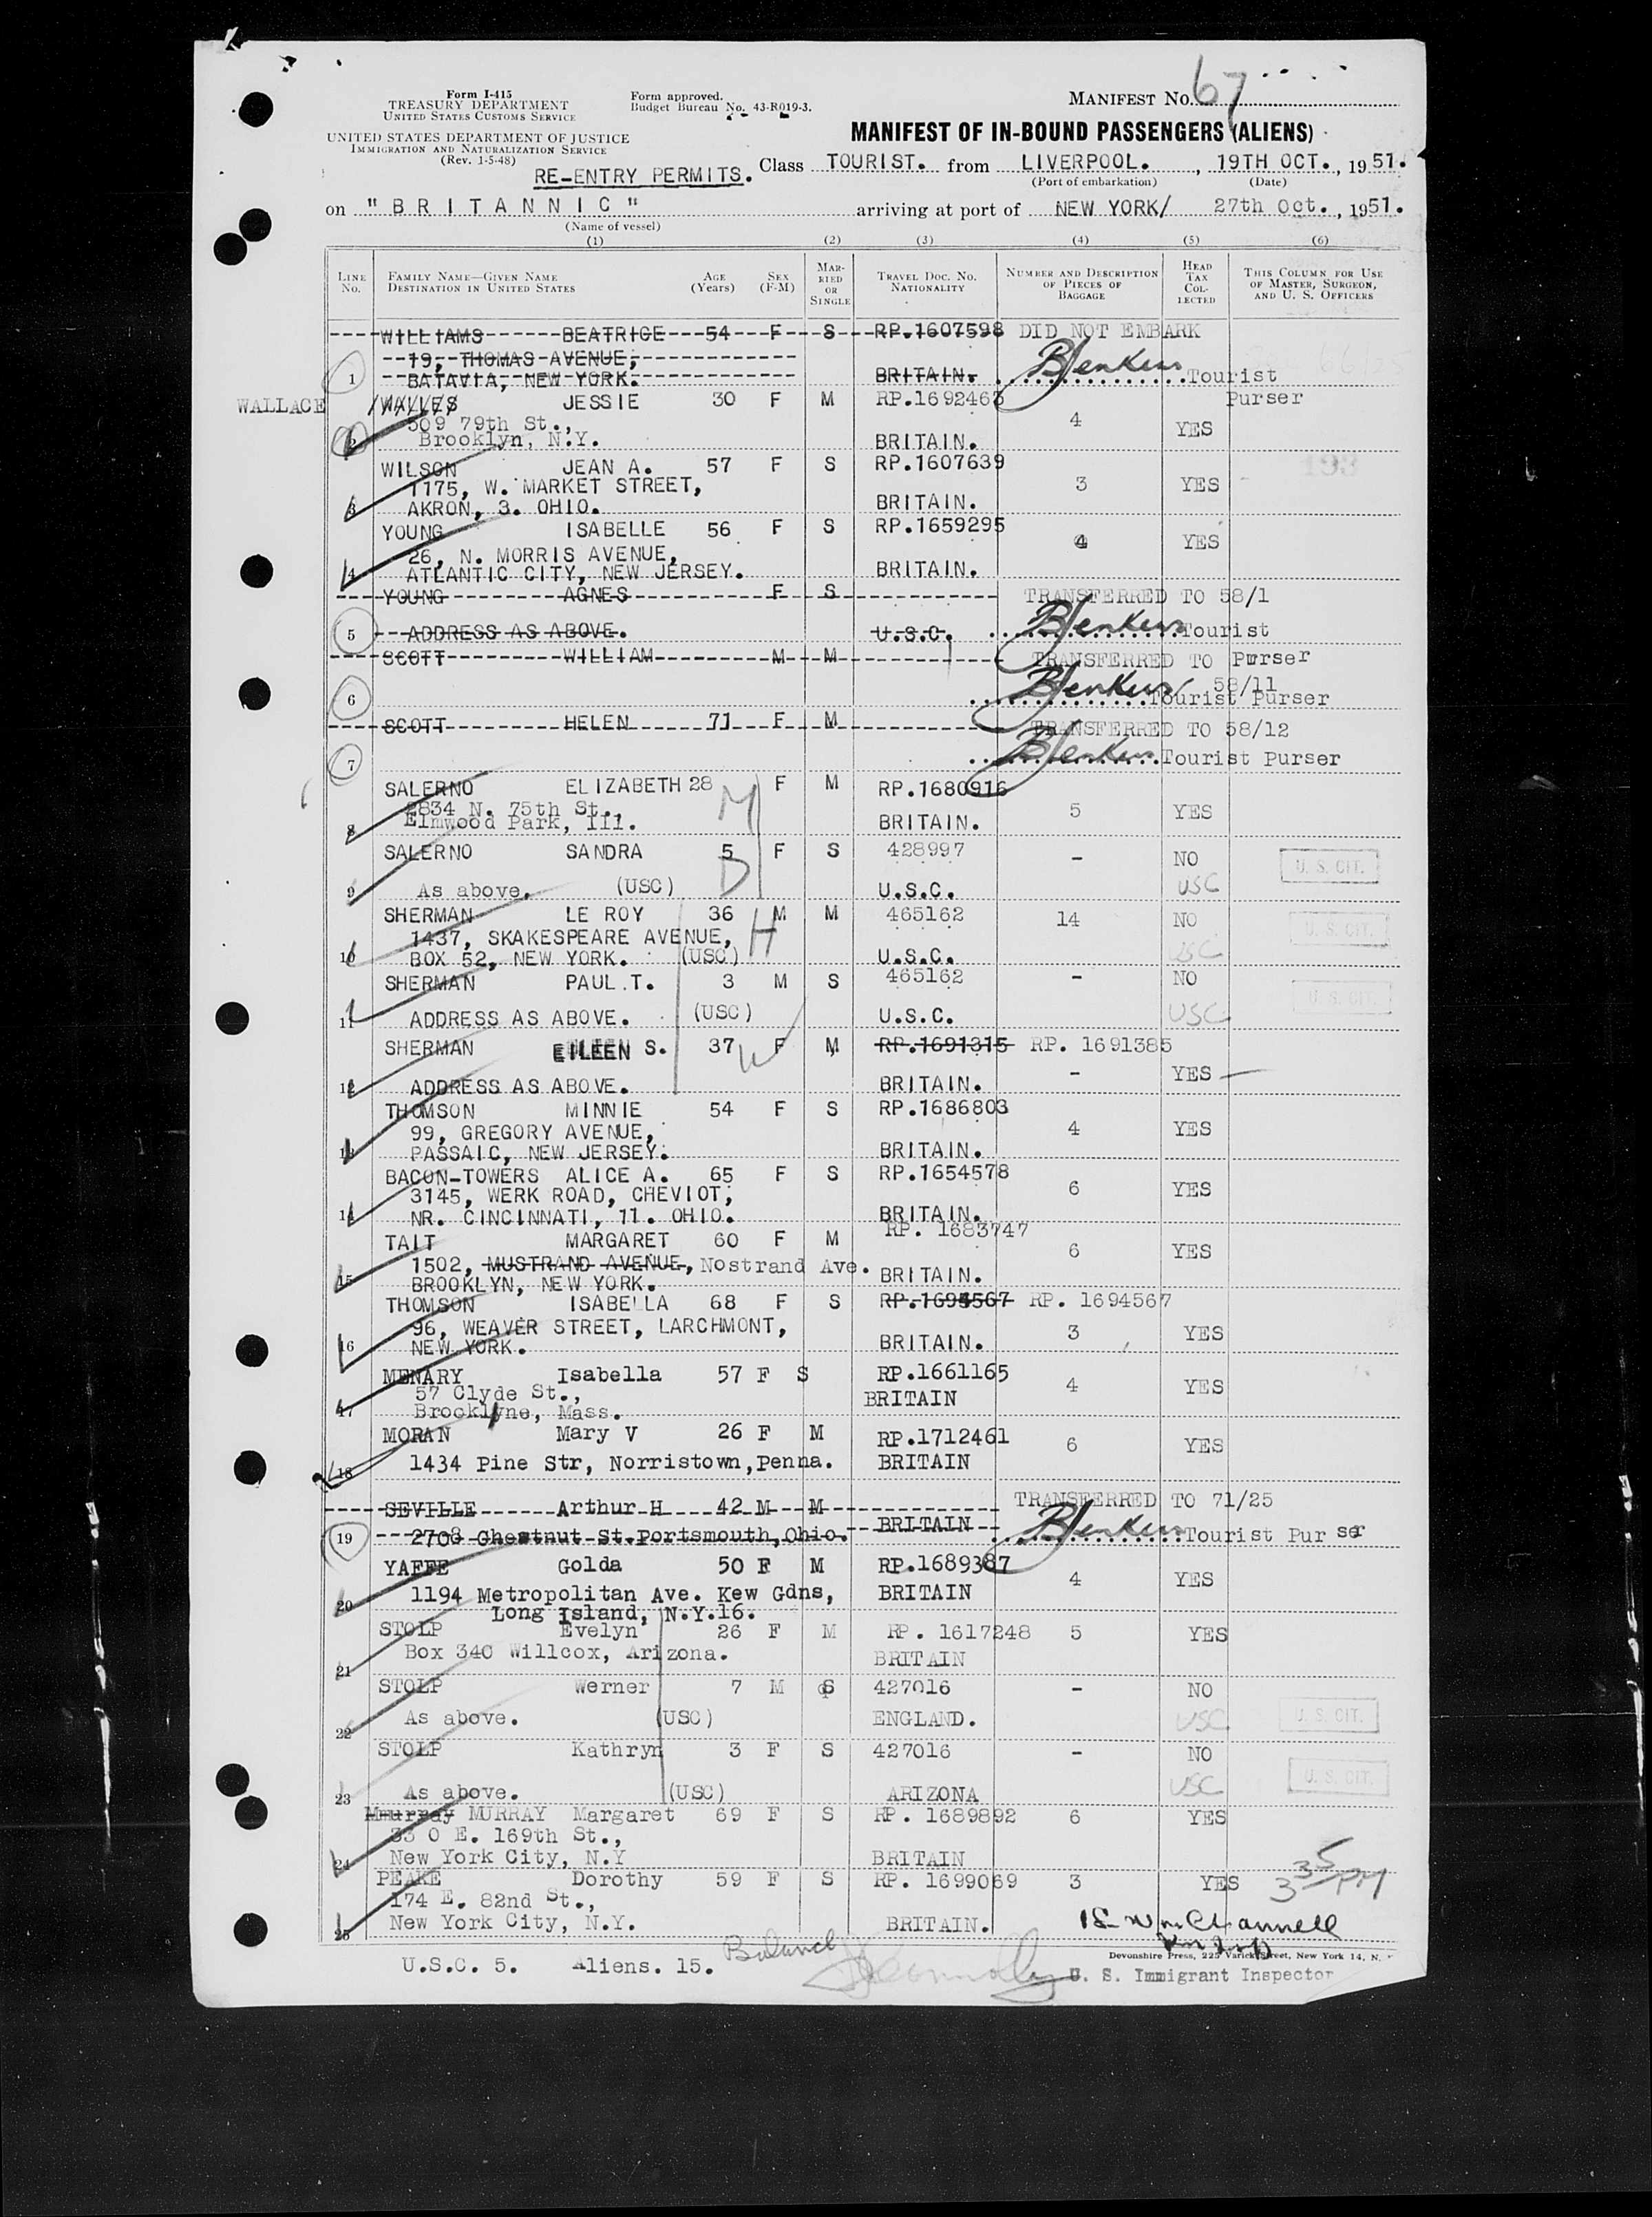 Form I-415
TREASURY DEPARTMENT
UNITED STATES CUSTOMS SERVICE
Form approved.
Budget Bureau No. 43-R019-3.
MANIFEST No. 67
UNITED STATES DEPARTMENT OF JUSTICE
IMMIGRATION AND NATURALIZATION SERVICE
(Rev. 1-5-48)
MANIFEST OF IN-BOUND PASSENGERS (ALIENS)
RE-ENTRY PERMITS. Class TOURIST. from LIVERPOOL., 19TH OCT., 1951.
(Port of embarkation) (Date)
on "BRITANNIC" arriving at port of NEW YORK/ 27th Oct., 1951.
(Name of vessel)
(1) (2) (3) (4) (5) (6)
LINE No. FAMILY NAME—GIVEN NAME DESTINATION IN UNITED STATES AGE (Years) SEX (F-M) MARRIED OR SINGLE TRAVEL DOC. NO. NATIONALITY NUMBER AND DESCRIPTION OF PIECES OF BAGGAGE HEAD TAX COLLECTED THIS COLUMN FOR USE OF MASTER, SURGEON, AND U. S. OFFICERS
WILLIAMS BEATRICE 54 F S RP.1607598 DID NOT EMBARK
19, THOMAS AVENUE,
1 BATAVIA, NEW YORK. BRITAIN. BJenkins Tourist
WALLACE WALLES JESSIE 30 F M RP.1692463 Purser
509 79th St., 4 YES
2 Brooklyn, N.Y. BRITAIN.
WILSON JEAN A. 57 F S RP.1607639
1175, W. MARKET STREET, 3 YES
3 AKRON, 3. OHIO. BRITAIN.
193
YOUNG ISABELLE 56 F S RP.1659295
26, N. MORRIS AVENUE, 4 YES
4 ATLANTIC CITY, NEW JERSEY. BRITAIN.
YOUNG AGNES F S TRANSFERRED TO 58/1
5 ADDRESS AS ABOVE. U.S.C. BJenkins Tourist
SCOTT WILLIAM M M TRANSFERRED TO Purser
58/11
6 BJenkins Tourist Purser
SCOTT HELEN 71 F M TRANSFERRED TO 58/12
7 BJenkins Tourist Purser
SALERNO ELIZABETH 28 M F M RP.1680916
2834 N. 75th St., 5 YES
8 Elmwood Park, Ill. BRITAIN.
SALERNO SANDRA 5 F S 428997 - NO U. S. CIT.
9 As above. (USC) D U.S.C. USC
SHERMAN LE ROY 36 M M 465162 14 NO U. S. CIT.
1437, SKAKESPEARE AVENUE, H
10 BOX 52, NEW YORK. (USC) U.S.C. USC
SHERMAN PAUL.T. 3 M S 465162 - NO U. S. CIT.
11 ADDRESS AS ABOVE. (USC) U.S.C. USC
SHERMAN EILEEN S. 37 W F M RP.1691315 RP. 1691385
- YES
12 ADDRESS AS ABOVE. BRITAIN.
THOMSON MINNIE 54 F S RP.1686803
99, GREGORY AVENUE, 4 YES
13 PASSAIC, NEW JERSEY. BRITAIN.
BACON-TOWERS ALICE A. 65 F S RP.1654578
3145, WERK ROAD, CHEVIOT, 6 YES
14 NR. CINCINNATI, 11. OHIO. BRITAIN.
TAIT MARGARET 60 F M RP. 1683747
1502, MUSTRAND AVENUE, Nostrand Ave. 6 YES
15 BROOKLYN, NEW YORK. BRITAIN.
THOMSON ISABELLA 68 F S RP.1695567 RP. 1694567
96, WEAVER STREET, LARCHMONT, 3 YES
16 NEW YORK. BRITAIN.
MENARY Isabella 57 F S RP.1661165
57 Clyde St., BRITAIN 4 YES
17 Brocklyne, Mass.
MORAN Mary V 26 F M RP.1712461 6 YES
18 1434 Pine Str, Norristown, Penna. BRITAIN
SEVILLE Arthur H 42 M M TRANSFERRED TO 71/25
19 2708 Chestnut St. Portsmouth, Ohio. BRITAIN BJenkins Tourist Purser
YAFFE Golda 50 F M RP.1689387 4 YES
20 1194 Metropolitan Ave. Kew Gdns, BRITAIN
Long Island, N.Y.16.
STOLP Evelyn 26 F M RP. 1617248 5 YES
21 Box 340 Willcox, Arizona. BRITAIN
STOLP Werner 7 M S 427016 - NO
22 As above. (USC) ENGLAND. USC U. S. CIT.
STOLP Kathryn 3 F S 427016 - NO
23 As above. (USC) ARIZONA USC U. S. CIT.
Mmurray MURRAY Margaret 69 F S RP. 1689892 6 YES
33 0 E. 169th St.,
24 New York City, N.Y BRITAIN
PEAKE Dorothy 59 F S RP. 1699069 3 YES 3 35/PM
174 E. 82nd St.,
25 New York City, N.Y. BRITAIN.
Devonshire Press, 225 Varick Street, New York 14, N.
U.S.C. 5. Aliens. 15. Balance U. S. Immigrant Inspector